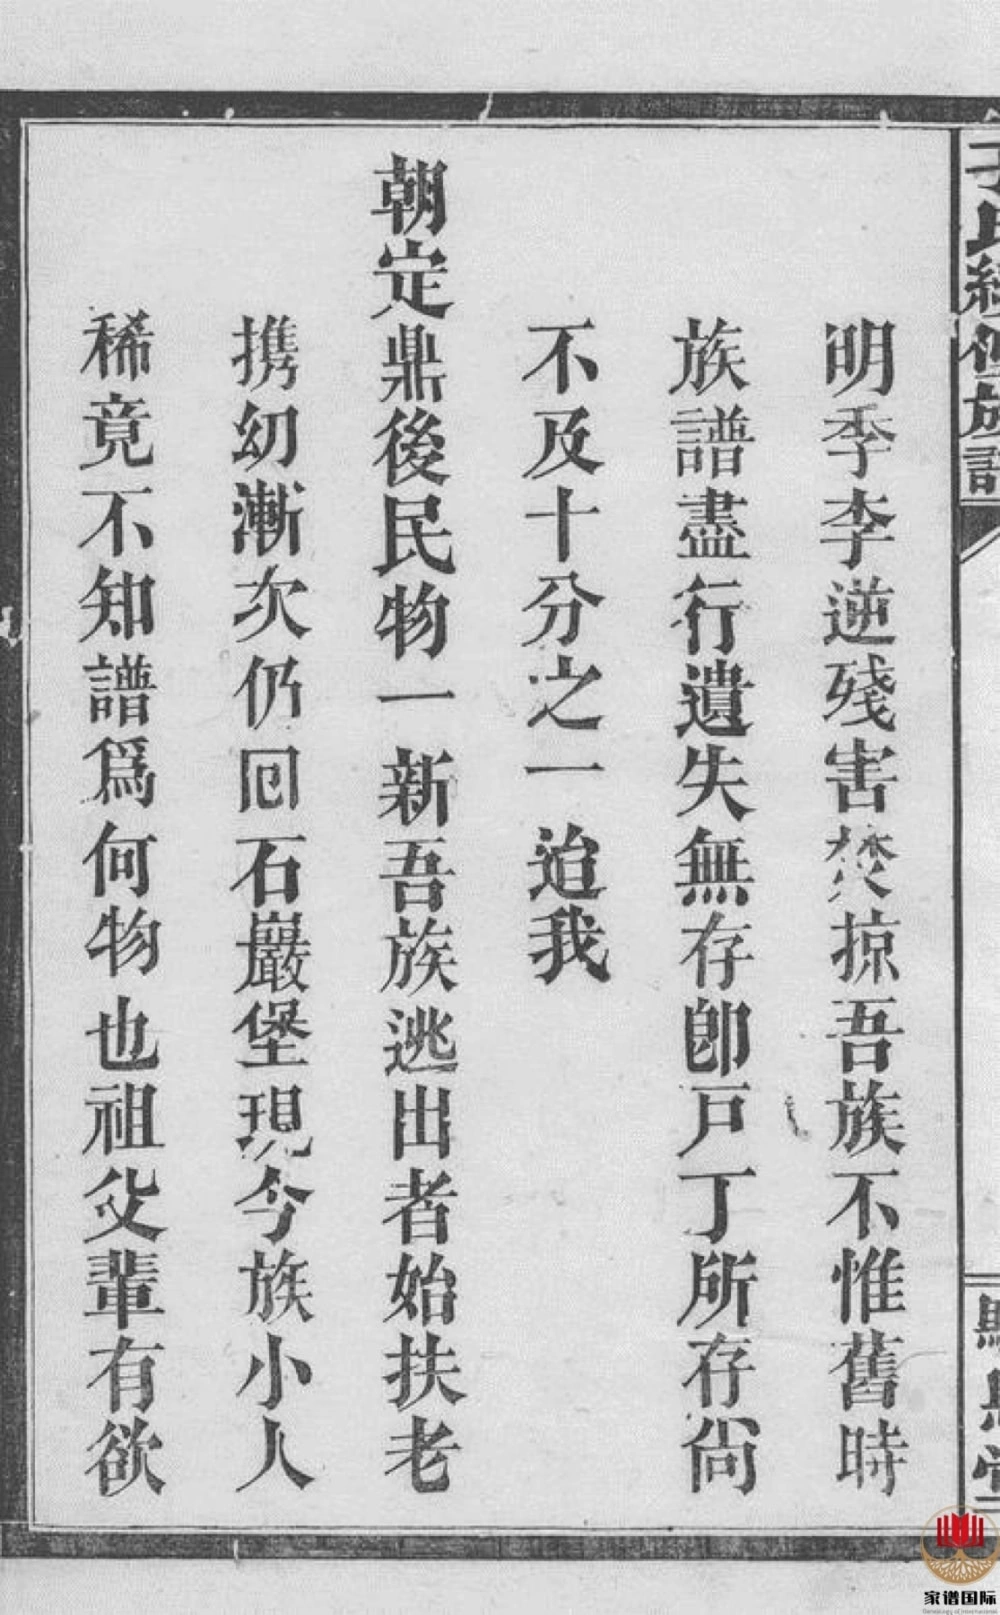 族譜
明季李逆殘害焚掠吾族不惟舊時
族譜盡行遺失無存卽戸丁所存尙
不及十分之一迨我
朝定鼎後民物一新吾族逃出者始扶老
携幼漸次仍回石巖堡現今族小人
稀竟不知譜爲何物也祖父輩有欲
家谱国际